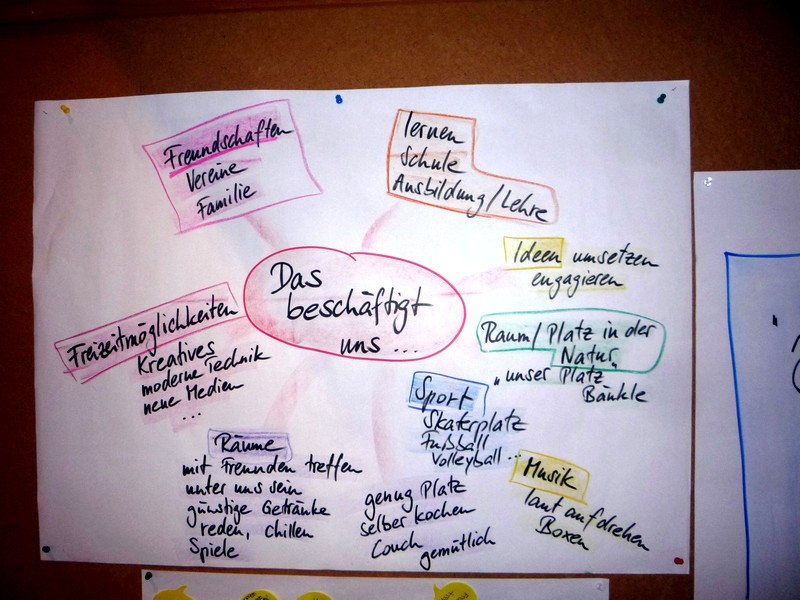 Freundschaften
Vereine
Familie
lernen
Schule
Ausbildung/Lehre
Das
beschäftigt
uns ...
Ideen umsetzen
engagieren
Raum/Platz in der
Natur
"unser Platz"
Bänkle
Freizeitmöglichkeiten
Kreatives
moderne Technik
neue Medien
...
Sport
Skaterplatz
Fußball
Volleyball ...
Musik
laut aufdrehen
Boxen
Räume
mit Freunden treffen
unter uns sein
günstige Getränke
reden, chillen
Spiele
genug Platz
selber kochen
Couch
gemütlich